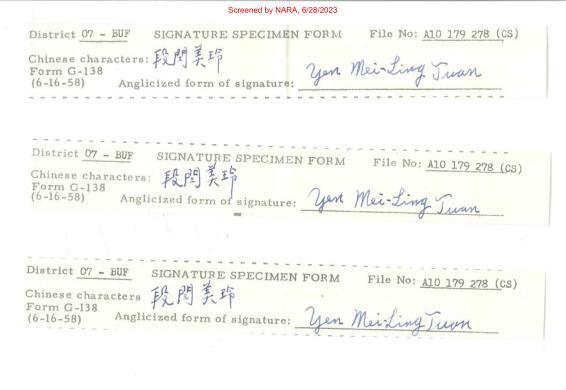 Screened by NARA, 6/28/2023
District 07 - BUF SIGNATURE SPECIMEN FORM File No: A10 179 278 (CS)
Chinese characters: 段閆美玲
Form G-138
(6-16-58) Anglicized form of signature: Yen Mei-Ling Tuan
District 07 - BUF SIGNATURE SPECIMEN FORM File No: A10 179 278 (CS)
Chinese characters: 段閆美玲
Form G-138
(6-16-58) Anglicized form of signature: Yen Mei-Ling Tuan
District 07 - BUF SIGNATURE SPECIMEN FORM File No: A10 179 278 (CS)
Chinese characters 段閆美玲
Form G-138
(6-16-58) Anglicized form of signature: Yen Mei-Ling Tuan